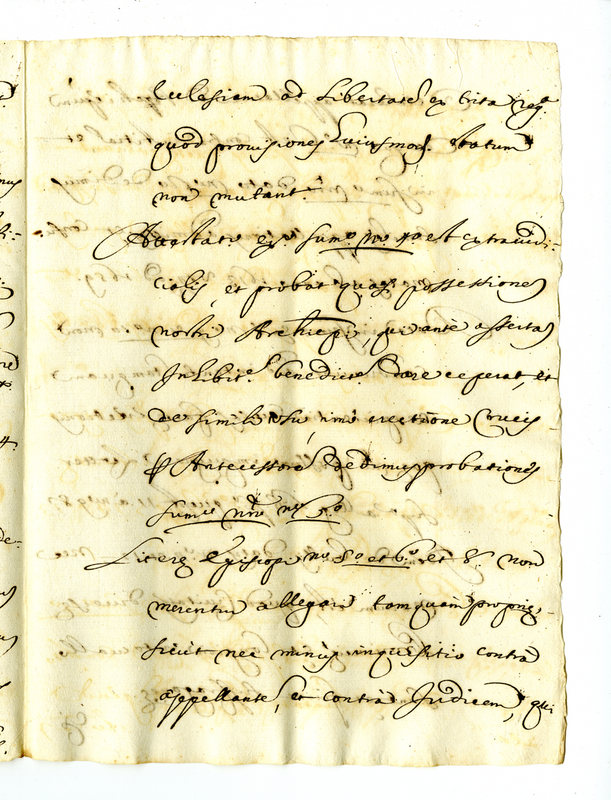 Ecclesiam ad libertate, ex cita reg.ª
quod provisiones huiusmodi statum
non mutant.
Attestat.º ex.ª sum.º n.º 4.º est extraiudi-
cialis, et probat quasi possessione
nostri Archiepi, qui ante asserta
Inhibit.e benedict.e dare ceperat, et
de simili usu nimi erectione Crucis
Antecessore dedimus probationes
sum.º nro n.º 3.º
Literę Episcopi n.º 5.º et 6.º et 8. non
merentur allegari tamquam proprię,
sicut nec minus inquisitio contra
appellante, et contra Judicem, qui